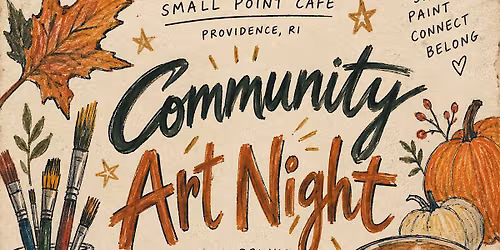 SMALL POINT CAFE
PROVIDENCE, RI
PAINT
CONNECT
BELONG
Community
Art Night